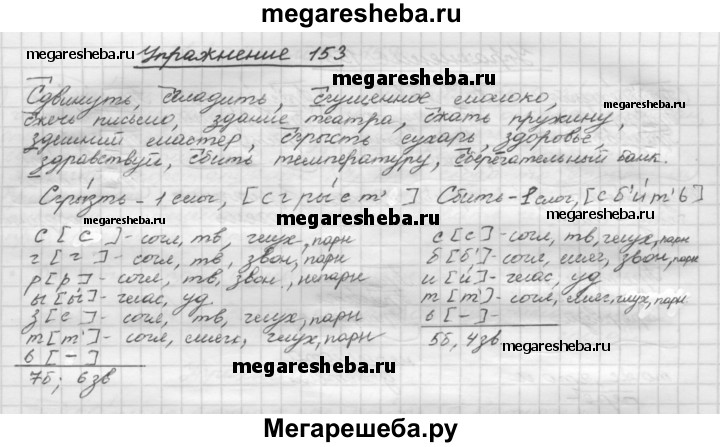 megaresheba.ru
megaresheba.ru
Упражнение 153
megaresheba.ru
Сдвинуть, сгладить, сгущенное молоко,
сжечь письмо, здание театра, сжать пружину,
здешний мастер, сгрысть сухарь, здоровье,
здравствуй, сбить температуру, сберегательный банк.
megaresheba.ru
Сгры́зть - 1 слог, [с г р ы́ с т' ]
Сбить - 1 слог, [с б' и́ т' ь]
megaresheba.ru
megaresheba.ru
с [с] - согл, тв, глух, парн
г [г] - согл, тв, звон, парн
р [р] - согл, тв, звон, непарн
ы [ы́] - глас, уд.
з [с] - согл, тв, глух, парн
т [т'] - согл, мягк, глух, парн
ь [-]
7б; 6 зв
с [с] - согл, тв, глух, парн
б [б'] - согл, мягк, звон, парн
и [и́] - глас, уд
т [т'] - согл, мягк, глух, парн
ь [-] -
5б, 4зв
megaresheba.ru
Мегарешеба.ру